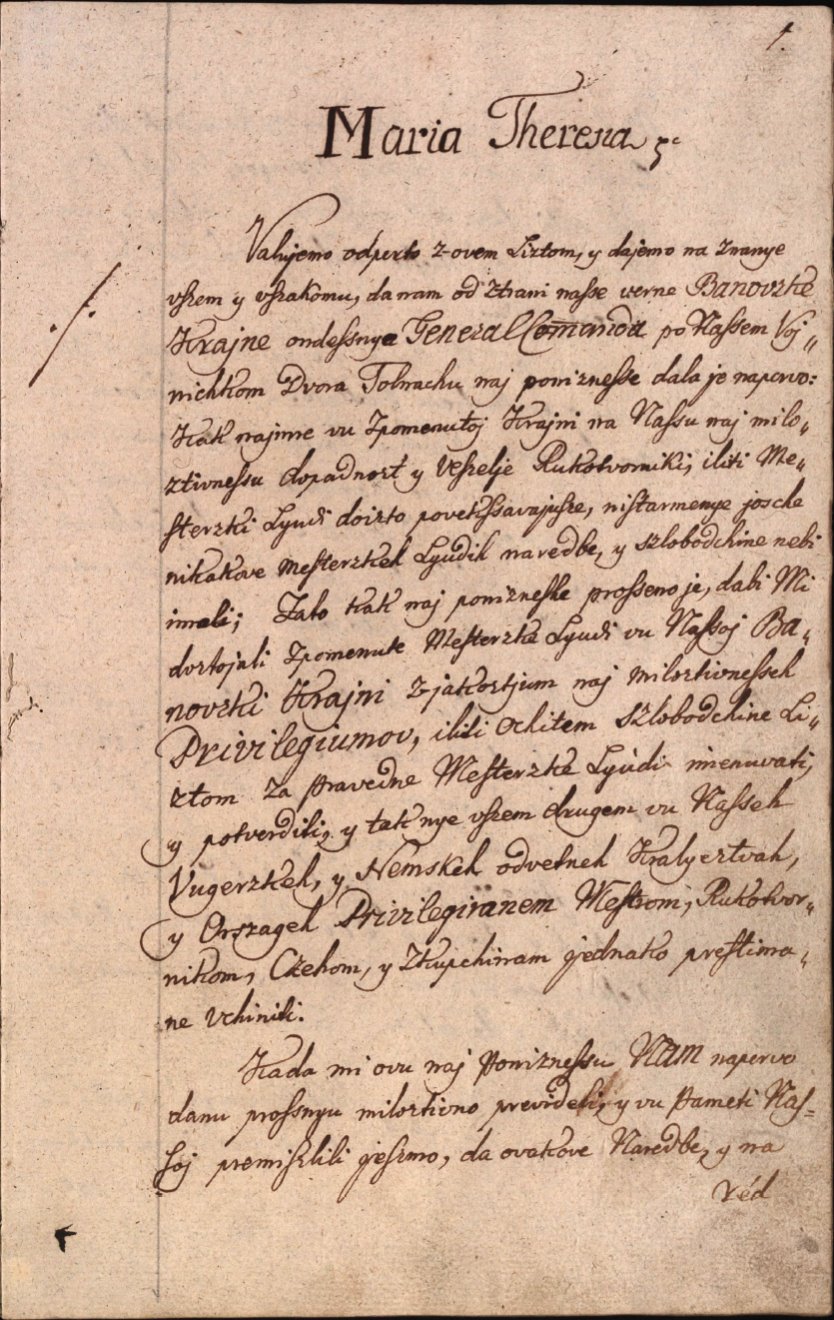 1.
Maria Theresia &c
Valujemo odperto z-ovem Liztom, y dajemo na znanye
vszem y vszakomu, da nam od ztrani nasse verne Banovzke
Krajne ondessnye General Comanda po Nassem Voj„
nichkom Dvora Tolnachu naj poniznesse dala je napervo:
Kak najmre vu zpomenutoj Krajni na Nassu naj milo„
ztivnessu dopadnozt y Veszelje Rukotvorniki, iliti Me„
sterzki Lyudi doizto povekssavajusze, nistarmenye josche
nikakove Mesterzkeh Lyudih naredbe, y szlobodchine nebi
imali; Zato kak naj poniznesse prosseno je, dabi Mi
doztojali zpomenute Mesterzke Lyudi vu Nassoj Ba„
novzki Krajni z-jakoztjum naj miloztivnesseh
Privilegiumov, iliti ochitem szlobodchine Li„
ztom za Pravedne Mesterzke Lyudi imenuvati,
y potverditi, y tak nye vszem drugem vu Nasseh
Vugerzkeh, y Nemskeh odvetneh Kralyeztvah,
y Orszageh Privilegiranem Mestrom, Rukotvor„
nikom, Czehom, y Zkupchinam jednako prestima„
ne Vchiniti.
Kada mi ovu naj Poniznessu Nam napervo
danu prossnyu miloztivno prevideli, y vu Pameti Nas=
soj premiszlili jeszmo, da ovakove Naredbe, y na
réd